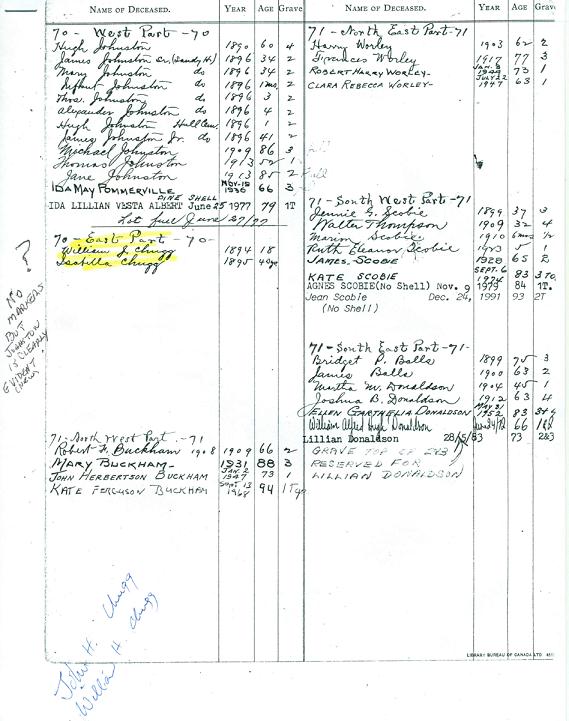 NAME OF DECEASED. YEAR AGE Grave
70 - West Part - 70
Hugh Johnston 1890 60 4
James Johnston Sr. (Sandy H.) 1896 34 2
Mary Johnston do 1896 34 2
Johnston do 1896 1 mo. 2
Thos. Johnston 1896 3 2
Alexander Johnston 1896 4 2
Hugh Johnston 1896 1 2
James Johnston Jr. do 1896 41 2
Michael Johnston 1909 86 3
Thomas Johnston 1913 52 1
Jane Johnston 1913 85 2
IDA MAY POMMERVILLE NOV-12 1936 66 3
PINE SHELL
IDA LILLIAN VESTA ALBERT June 25 1977 79 1T
Lot full June 27/77
70 - East Part - 70-
William J. Chugg 1894 18
Isabella Chugg 1895 40 yr
?
NO
MARKERS
BUT
JOHNSTON
IS CLEARLY
EVIDENT
71 - North West Part - 71
Robert F. Buckham 1908 1909 66 2
MARY BUCKHAM- 1931 88 3
JOHN HERBERTSON BUCKHAM JAN. 2 1947 73 1
KATE FERGUSON BUCKHAM SEPT 13 1968 94 1
John H. Chugg
Willia H Chugg
NAME OF DECEASED. YEAR AGE Grave
71 - North East Part - 71
Harry Worley 1903 62 2
Frances Worley 1917 77 3
ROBERT HARRY WORLEY- JAN. 8 1944 73 1
CLARA REBECCA WORLEY- JULY 22 1947 63 1
71 - South West Part - 71
Jennie G. Scobie 1899 37 3
Walter Thompson 1909 32 4
Marion Scobie 1910 6 mos 1/2
Ruth Eleanor Scobie 1923 5 1
JAMES. SCOBIE 1928 65 2
KATE SCOBIE SEPT. 6 1974 83 3
AGNES SCOBIE(No Shell) Nov. 9 1979 84 1T.
Jean Scobie Dec. 24, 1991 93 2T
(No Shell)
71 - South East Part - 71 -
Bridget P. Balls 1899 75 3
James Balls 1900 63 2
Martha M. Donaldson 1904 45 1
Joshua B. Donaldson 1912 63 4
ELLEN GARTHELIA DONALDSON MAY 31 1952 83
William Alfred Hugh Donaldson 66
Lillian Donaldson 28/5/83 73 2&3
GRAVE TOP OF 2&3
RESERVED FOR
LILLIAN DONALDSON
LIBRARY BUREAU OF CANADA LTD